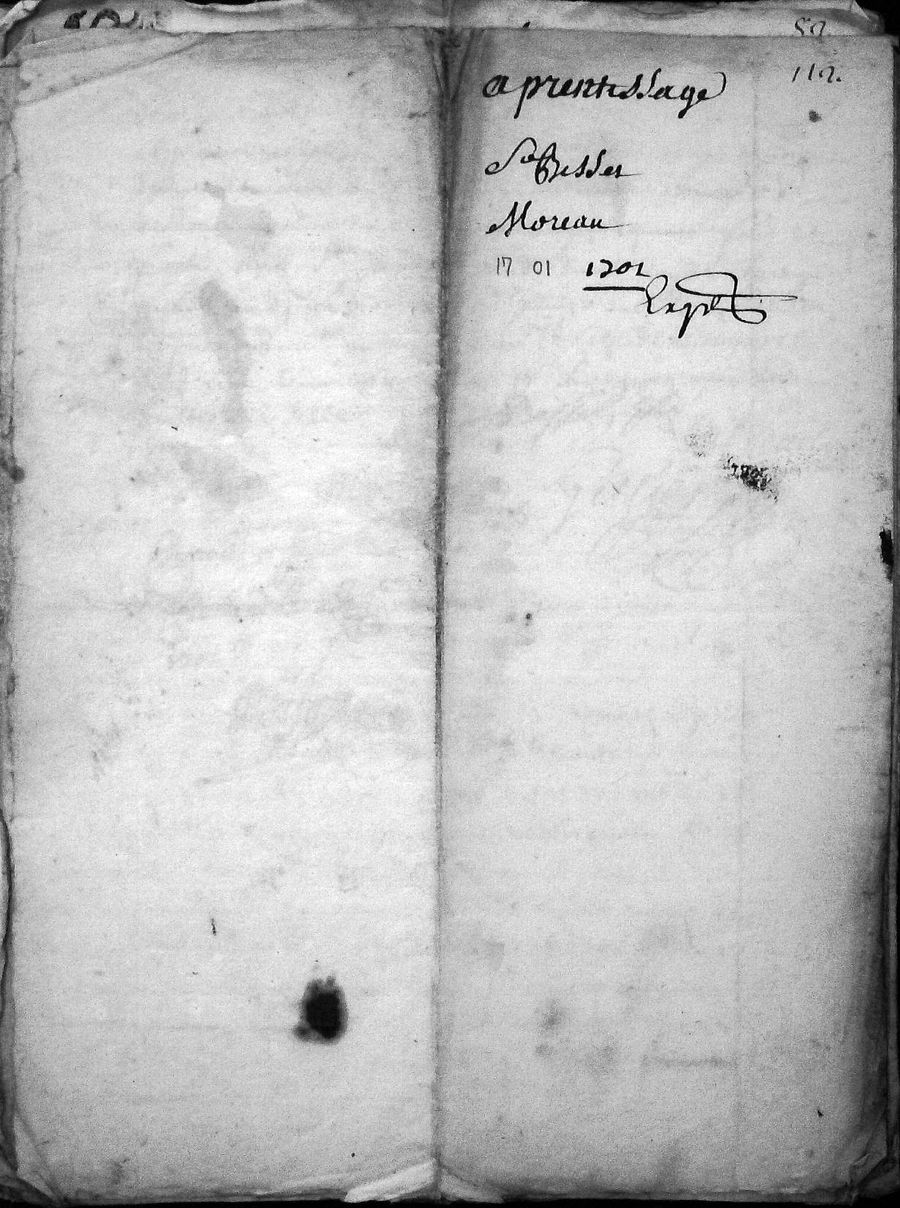 112.
aprentissage
Sr Besset
Moreau
17 01 1701